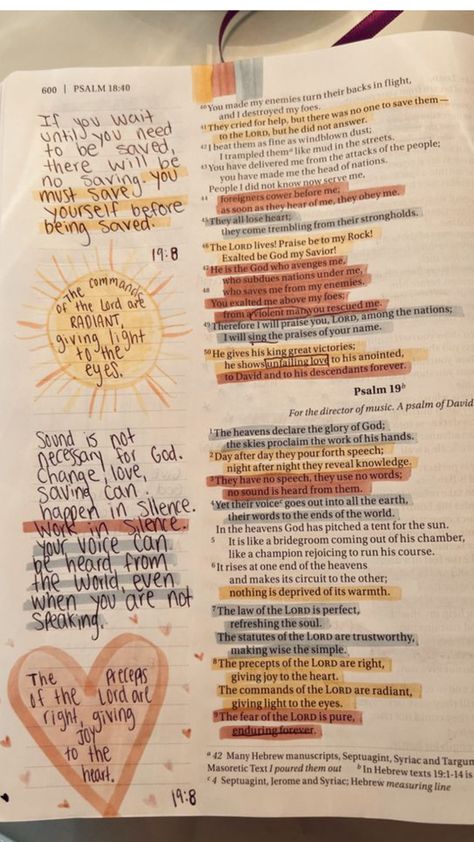 600 | PSALM 18:40
If you wait
until you need
to be saved,
there will be
no saving. You
must save
yourself before
being saved.
19:8
The commands
of the Lord are
RADIANT,
giving light
to the
eyes.
Sound is not
necessary for God.
Change, love,
saving can
happen in silence.
Work in silence.
your voice can
be heard from
the world, even
when you are not
speaking.
The Preceps
of the Lord are
right, giving
Joy
to the
heart.
19:8
40 You made my enemies turn their backs in flight,
and I destroyed my foes.
41 They cried for help, but there was no one to save them—
to the LORD, but he did not answer.
42 I beat them as fine as windblown dust;
I trampled them a like mud in the streets.
43 You have delivered me from the attacks of the people;
you have made me the head of nations.
People I did not know now serve me,
44 foreigners cower before me;
as soon as they hear of me, they obey me.
45 They all lose heart;
they come trembling from their strongholds.
46 The LORD lives! Praise be to my Rock!
Exalted be God my Savior!
47 He is the God who avenges me,
who subdues nations under me,
48 who saves me from my enemies.
You exalted me above my foes;
from a violent man you rescued me.
49 Therefore I will praise you, LORD, among the nations;
I will sing the praises of your name.
50 He gives his king great victories;
he shows unfailing love to his anointed,
to David and to his descendants forever.
Psalm 19 b
For the director of music. A psalm of David
1 The heavens declare the glory of God;
the skies proclaim the work of his hands.
2 Day after day they pour forth speech;
night after night they reveal knowledge.
3 They have no speech, they use no words;
no sound is heard from them.
4 Yet their voice c goes out into all the earth,
their words to the ends of the world.
In the heavens God has pitched a tent for the sun.
5 It is like a bridegroom coming out of his chamber,
like a champion rejoicing to run his course.
6 It rises at one end of the heavens
and makes its circuit to the other;
nothing is deprived of its warmth.
7 The law of the LORD is perfect,
refreshing the soul.
The statutes of the LORD are trustworthy,
making wise the simple.
8 The precepts of the LORD are right,
giving joy to the heart.
The commands of the LORD are radiant,
giving light to the eyes.
9 The fear of the LORD is pure,
enduring forever.
a 42 Many Hebrew manuscripts, Septuagint, Syriac and Targum
Masoretic Text I poured them out b In Hebrew texts 19:1-14 is
c 4 Septuagint, Jerome and Syriac; Hebrew measuring line